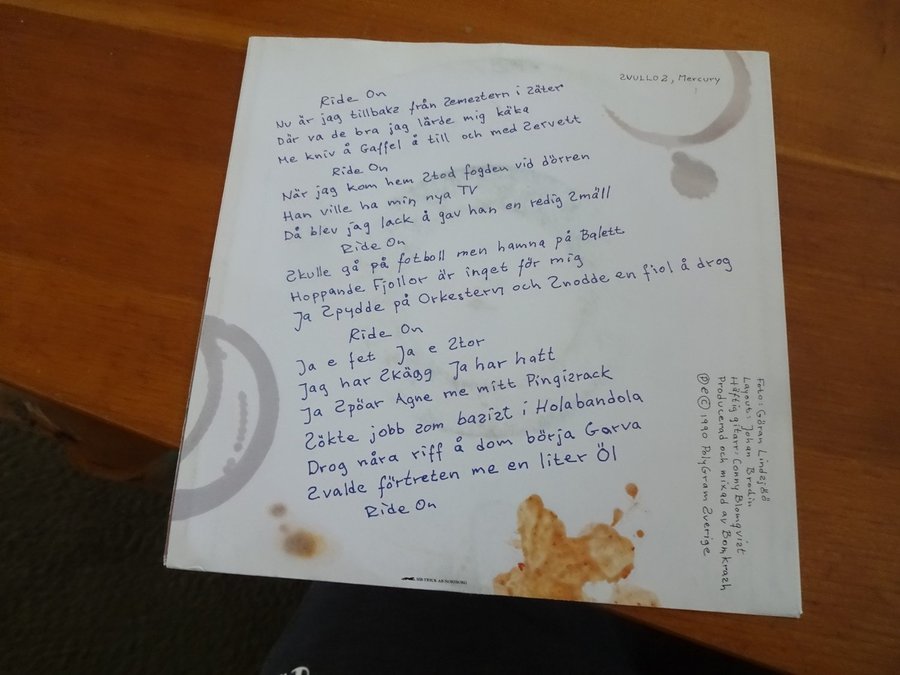 SVULLOS, Mercury
Ride On
Nu är jag tillbaks från Semestern i Säter
Där va de bra jag lärde mig käka
Me kniv å Gaffel å till och med Servett
Ride On
När jag kom hem Stod fogden vid dörren
Han ville ha min nya TV
Då blev jag lack å gav han en redig Smäll
Ride On
Skulle gå på fotboll men hamna på Balett
Hoppande Fjollor är inget för mig
Ja Spydde på Orkestern och Snodde en fiol å drog
Ride On
Ja e fet Ja e Stor
Jag har Skägg Ja har hatt
Ja Spöar Agne me mitt Pingisrack
Sökte jobb som basist i Holabandola
Drog nåra riff å dom börja Garva
Svalde förtreten me en liter Öl
Ride On
Foto: Göran Lindsjöö
Layout: Johan Brodin
Häftig gitarr: Conny Blomqvist
Producerad och mixad av Bomkrash
Ⓟ e © 1990 PolyGram Sverige